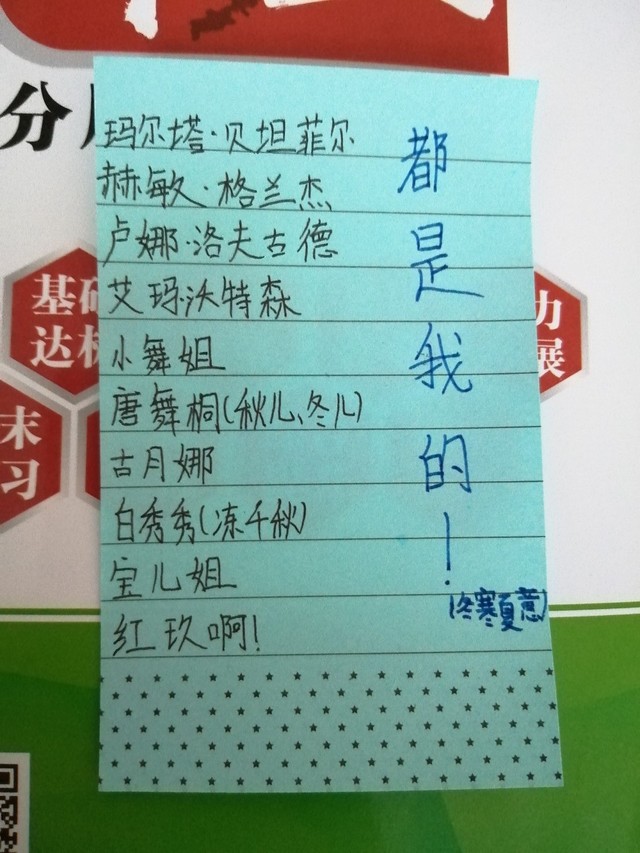 分
玛尔塔·贝坦菲尔
赫敏·格兰杰
卢娜·洛夫古德
艾玛·沃特森
小舞姐
唐舞桐(秋儿、冬儿)
古月娜
白秀秀(冻千秋)
宝儿姐
红玖啊!
都是我的!
(冬寒夏意)
基础
达标
末
习
力
展